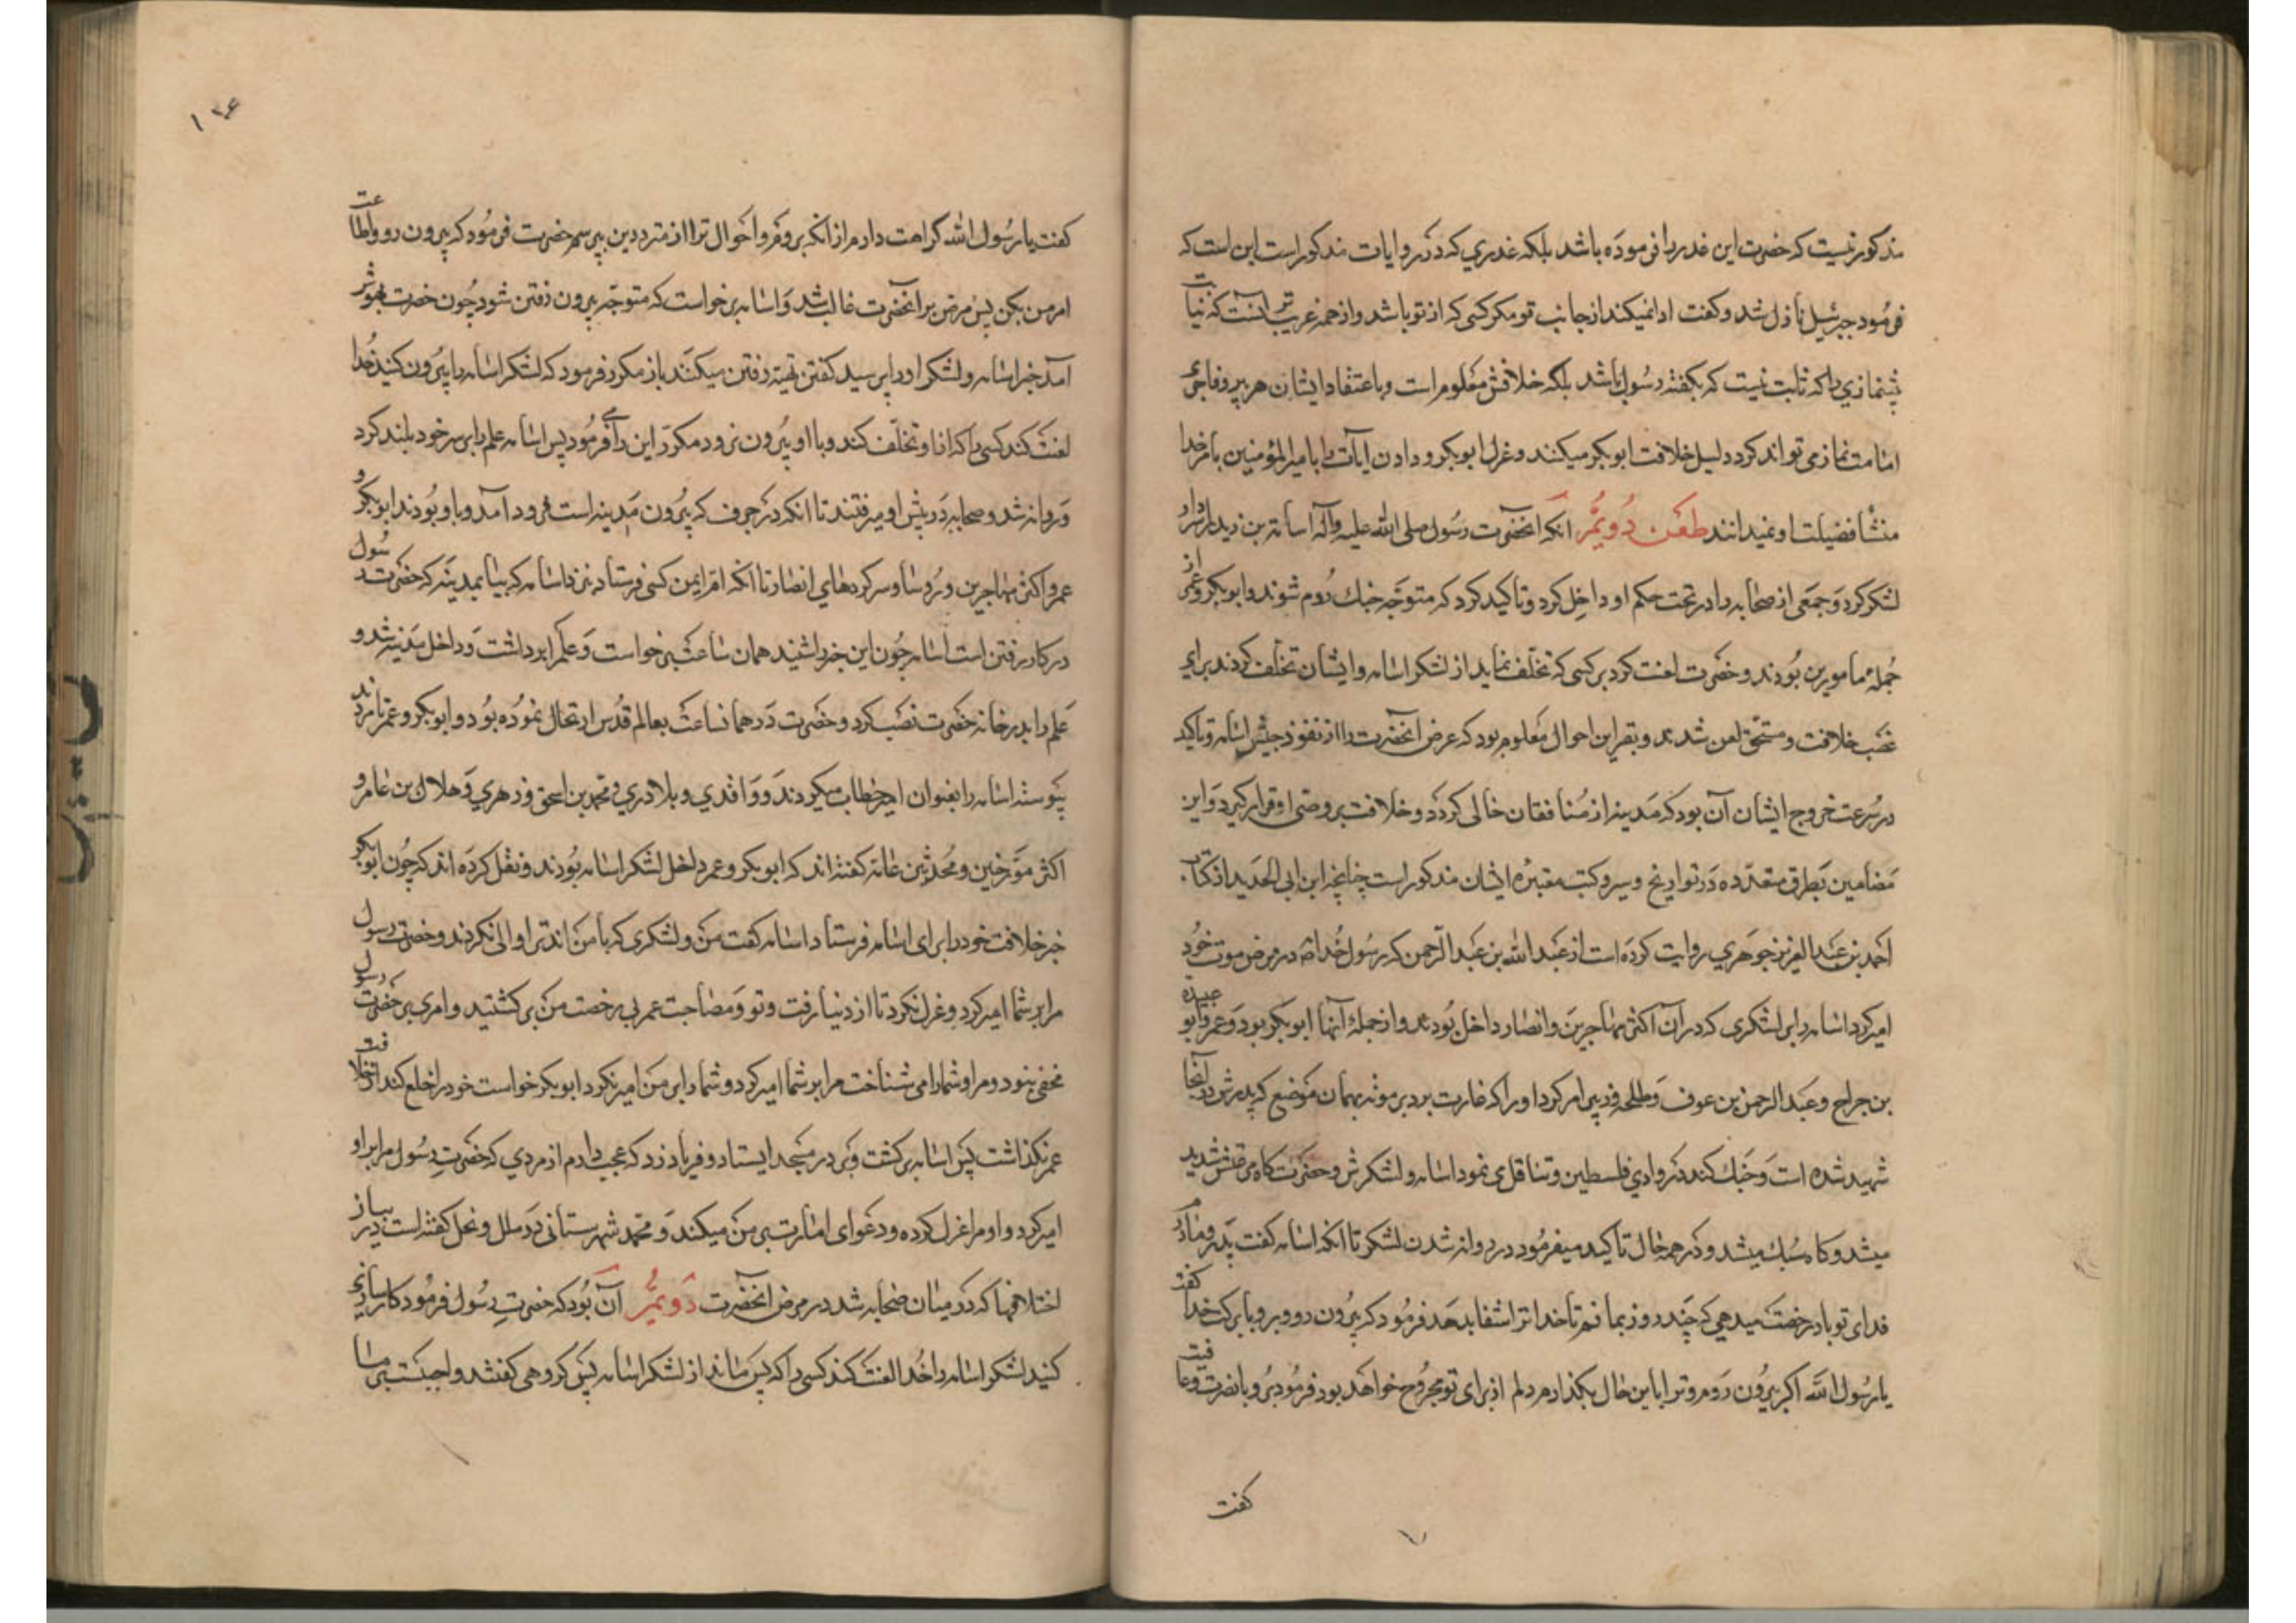 مذکور نیست که حضرت این غدر را فرموده باشد بلکه غدری که در روایات مذکور است این است که
فرمود جبرئیل نازل شد و گفت ادا نمیکند از جانب تو مگر کسی که از تو باشد و از همه غریب تر آنست که نیابت
پیشنمازی را که ثابت نیست که بگفته رسول باشد بلکه خلافش معلوم است و باعتقاد ایشان هر بر و فاجری
امامت نماز می تواند کرد دلیل خلافت ابوبکر میکنند و عزل ابوبکر و دادن آیات را بامیرالمؤمنین بامر خدا
منشأ فضیلت او نمیدانند طعن دویم آنکه آنحضرت رسول صلی الله علیه وآله اسامة بن زید را سردار
لشکر کرد و جمعی از صحابه را در تحت حکم او داخل کرد و تاکید کرد که متوجه جنگ روم شوند و ابوبکر و عمر از
جملهٔ مامورین بودند و حضرت لعنت کرد بر کسی که تخلف نماید از لشکر اسامه و ایشان تخلف کردند برای
غصب خلافت و مستحق لعن شدند و بقراین احوال معلوم بود که غرض آنحضرت را از نفوذ جیش اسامه و تاکید
در سرعت خروج ایشان آن بود که مدینه از منافقان خالی گردد و خلافت بر وصی او قرار گیرد و این
مضامین بطرق متعدده در تواریخ و سیر و کتب معتبره ایشان مذکور است چنانچه ابن ابی الحدید از کتاب
احمد بن عبدالعزیز جوهری روایت کرده است از عبدالله بن عبدالرحمن که رسول خدا ص در مرض موت خود
امیر کرد اسامه را بر لشکری که در آن اکثر مهاجرین و انصار داخل بودند و از جملهٔ آنها ابوبکر بود و عمر و ابو عبیده
بن جراح و عبدالرحمن بن عوف و طلحه و زبیر امر کرد او را که غارت برد بر موته بهمان موضع که پدرش در آنجا
شهید شده است و جنگ کند در وادی فلسطین و تثاقل می نمود اسامه و لشکرش و حضرت گاه مرضش شدید
میشد و گاه سبک میشد و در همه حال تاکید میفرمود در روانه شدن لشکر تا آنکه اسامه گفت پدر و مادرم
فدای تو باد رخصت میدهی که چند روز بمانم تا خدا ترا شفا بدهد فرمود که بیرون رو و برو با برکت خدا گفت
یا رسول الله اگر بیرون روم و ترا باین حال بگذارم دلم از برای تو مجروح خواهد بود فرمود برو با نصرت و عافیت
گفت
گفت یا رسول الله کراهت دارم از آنکه بروم و احوال ترا از مترددین بپرسم حضرت فرمود که بیرون رو و اطاعت
امر من بکن پس مرض بر آنحضرت غالب شد و اسامه برخواست که متوجه بیرون رفتن شود چون حضرت بهوش
آمد خبر اسامه و لشکر او را پرسید گفتند تهیه رفتن میکنند باز مکرر فرمود که لشکر اسامه را بیرون کنید خدا
لعنت کند کسی را که از او تخلف کند و با او بیرون نرود مکرر این را می فرمود پس اسامه علم را بر سر خود بلند کرد
و روانه شد و صحابه در پیش او میرفتند تا آنکه در جرف که بیرون مدینه است فرود آمد و با او بودند ابوبکر و
عمر و اکثر مهاجرین و رؤسا و سرکرده های انصار تا آنکه ام ایمن کسی فرستاد بنزد اسامه که بیا بمدینه که حضرت رسول
در کار رفتن است اسامه چون این خبر را شنید همان ساعت برخواست و علم را برداشت و داخل مدینه شد و
علم را بدر خانه حضرت نصب کرد و حضرت در همان ساعت بعالم قدس ارتحال نموده بود و ابوبکر و عمر تا مردند
پیوسته اسامه را بعنوان امیر خطاب میکردند و واقدی و بلاذری و محمد بن اسحق و زهری و هلال بن عامر و
اکثر مؤرخین و محدثین عامه گفته اند که ابوبکر و عمر داخل لشکر اسامه بودند و نقل کرده اند که چون ابوبکر
خبر خلافت خود را برای اسامه فرستاد اسامه گفت من و لشکری که با من اند ترا والی نکردند و حضرت رسول
مرا بر شما امیر کرد و عزل نکرد تا از دنیا رفت و تو و مصاحبت عمر بی رخصت من برگشتید و امری بر حضرت رسول
مخفی نبود و مرا و شما را می شناخت مرا بر شما امیر کرد و شما را بر من امیر نکرد ابوبکر خواست خود را خلع کند از خلافت
عمر نگذاشت پس اسامه برگشت و بر در مسجد ایستاد و فریاد زد که عجب دارم از مردی که حضرت رسول مرا بر او
امیر کرد و او مرا عزل کرده و دعوای امارت بر من میکند و محمد شهرستانی در ملل و نحل گفته است در بیان
اختلافها که در میان صحابه شد در مرض آنحضرت دویم آن بود که حضرت رسول فرمود کارسازی
کنید لشکر اسامه را خدا لعنت کند کسی را که پس ماند از لشکر اسامه پس گروهی گفتند واجبست بر ما